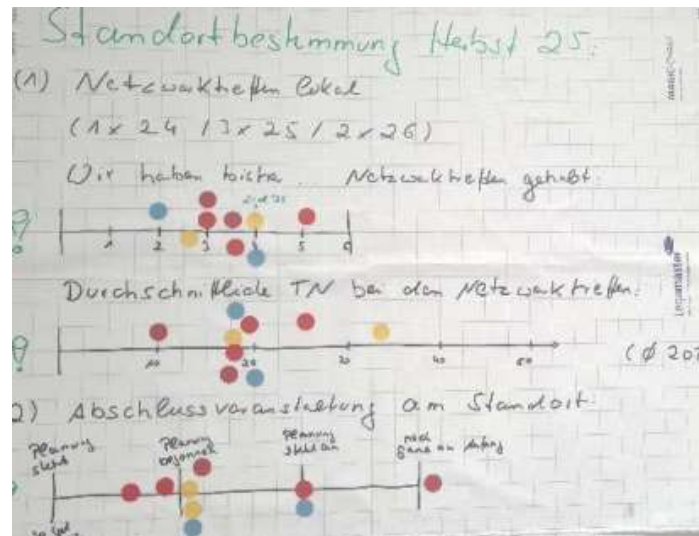 Standortbestimmung Herbst 25.
(1) Netzwerktreffen lokal
(1x 24 / 3x 25 / 2x 26)
Wir haben bisher ... Netzwerktreffen gehabt.
1 2 3 4 5 6
Durchschnittliche TN bei den Netzwerktreffen.
10 20 30 40 50
2) Abschlussveranstaltung am Standort.
Planung steht
Planung begonnen
Planung steht an
noch ganz am Anfang
Legamaster